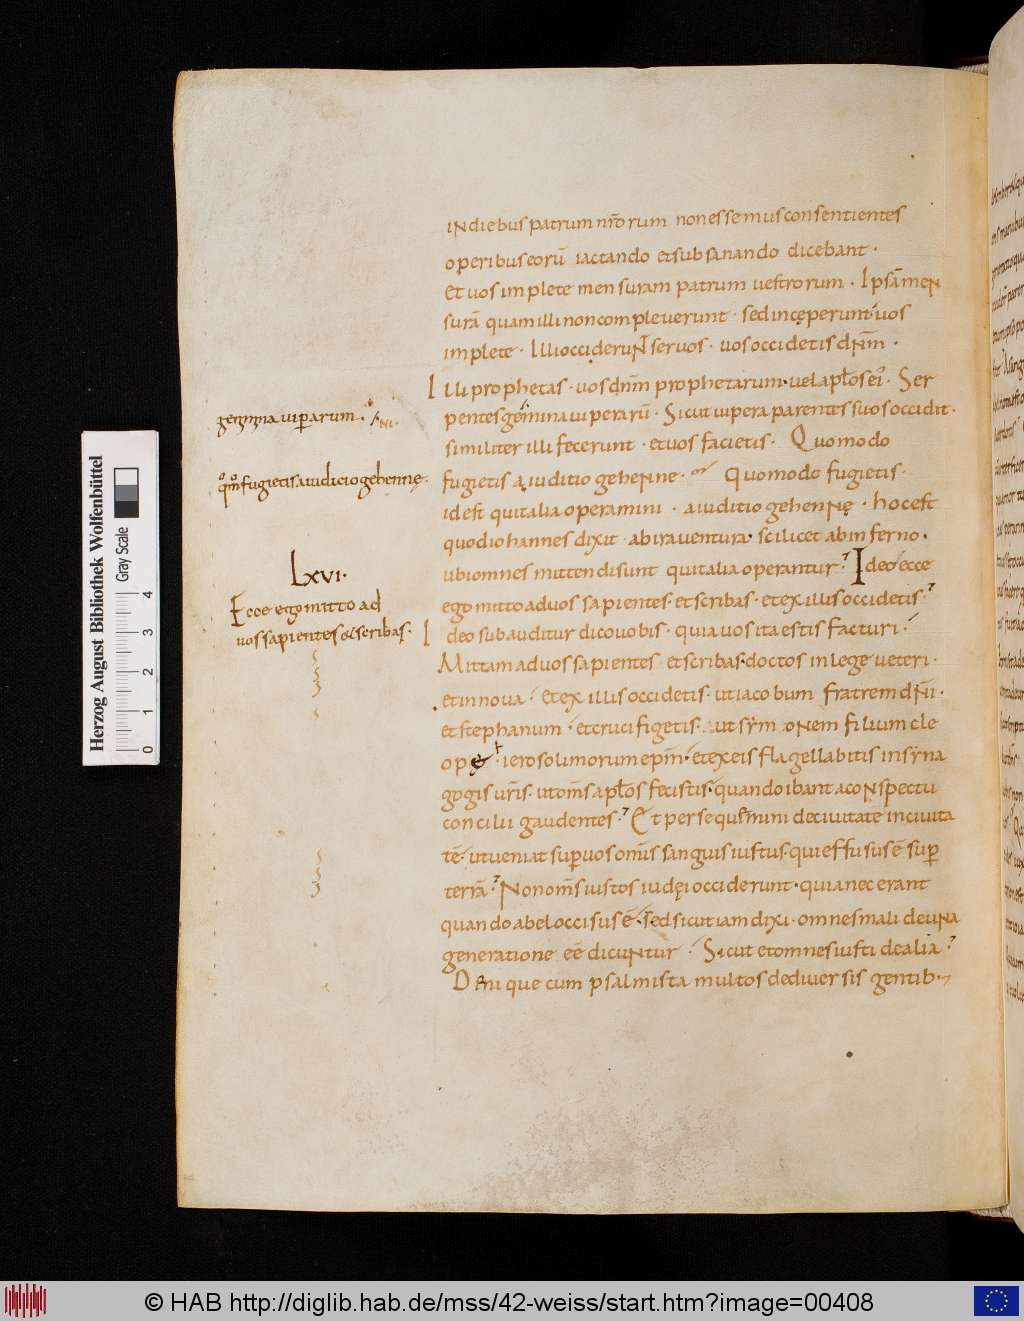 in diebus patrum nr̄orum non essemus consentientes
operibus eorū iactando et subsanando dicebant ·
Et vos implete mensuram patrum vestrorum · Ipsām men
surā quam illi non compleverunt · sed incęperunt · vos
implete · Illi occiderunt servos · vos occidetis dn̄m ·
Illi prophetas · vos dn̄m prophetarum · vel apl̄os ei · Ser
gegnima viperarum ·
pentes gemina viperarū · Sicut vipera parentes suos occidit ·
similiter illi fecerunt · et vos facietis · Quomodo
qm̊ fugietis a iudicio gehennę ·
fugietis a iuditio gehenne · Quomodo fugietis ·
id est qui talia operamini · a iuditio gehennę · hoc est
quod iohannes dixit · ab ira ventura · scilicet ab inferno ·
Lxvi ·
ubi omnes mittendi sunt qui talia operantur · Ideo ecce
Ecce ego mitto ad
ego mitto ad vos sapientes · et scribas · et ex illis occidetis ·
vos sapientes & scribas ·
Ideo subauditur dico vobis · quia vos ita estis facturi ·
Mittam ad vos sapientes et scribas · doctos in lege veteri ·
et in nova · et ex illis occidetis · ut iacobum fratrem dn̄i ·
et stephanum · et crucifigetis · ut sym̄onem filium cle
opę · ierosolimorum epm̄ · et ex eis flagellabitis in syna
gogis vr̄is · ut om̄s apl̄os fecistis · quando ibant a conspectu
concilii gaudentes · Et persequemini de civitate in civita
tē · ut veniat sup vos om̄is sanguis iustus · qui effusus ē sup
terrā · Non om̄s iustos iudęi occiderunt · quia nec erant
quando abel occisus ē · sed sicut iam dixi · omnes mali de una
generatione eē dicuntur · Sicut et omnes iusti de alia ·
Denique cum psalmista multos de diversis gentib ·
Herzog August Bibliothek Wolfenbüttel
Gray Scale
0 1 2 3 4
© HAB http://diglib.hab.de/mss/42-weiss/start.htm?image=00408